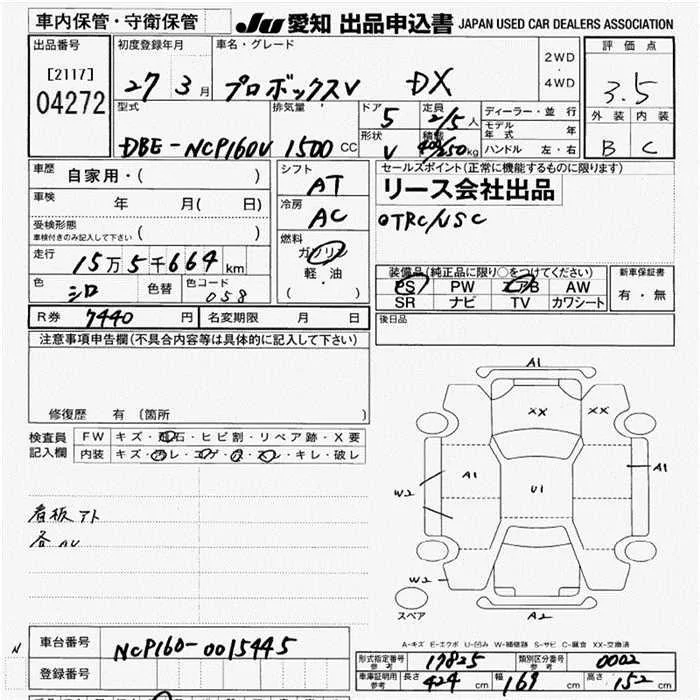 車内保管・守衛保管
JU 愛知 出品申込書 JAPAN USED CAR DEALERS ASSOCIATION
出品番号 初度登録年月 車名・グレード 2WD ・ 4WD 評価点
[2117]
04272
27 3月 プロボックスV DX 3.5
型式 排気量 ドア 5 定員 2/5人 ディーラー・並行 外装 内装
モデル年式 年
DBE-NCP160V 1500 CC 形状 V 積載 400/250kg ハンドル 左・右 B C
車歴 自家用・( ) シフト AT セールスポイント(正常に機能するものに限ります)
リース会社出品
車検 年 月( 日) 冷房 AC ○TRC/VSC
受検形態 車検付きのみ記入して下さい ( )
燃料 ガソリン 軽・油 ( )
走行 15万5千664km
装備品(純正品に限り○をつけてください) 新車保証書
PS PW エアB AW 有・無
SR ナビ TV カワシート
色 シロ 色替 色コード 058
R券 7440 円 名変期限 月 日 後日品
注意事項申告欄(不具合内容等は具体的に記入して下さい)
修復歴 有(箇所 )
検査員記入欄 FW キズ・飛石・ヒビ割・リペア跡・X要
内装 キズ・汚レ・コゲ・穴・スレ・キレ・破レ
看板アト
各AU
A1
XX XX
A1 U1 A1
W2
W2
A2
スペア
A-キズ E-エクボ U-凹み W-補修跡 S-サビ C-腐食 XX-交換済
車台番号 NCP160-0015445
N
登録番号
形式指定番号 参考 17825 類別区分番号 参考 0002
車庫証明用 参考 長さ 424 cm 幅 169 cm 高さ 152 cm